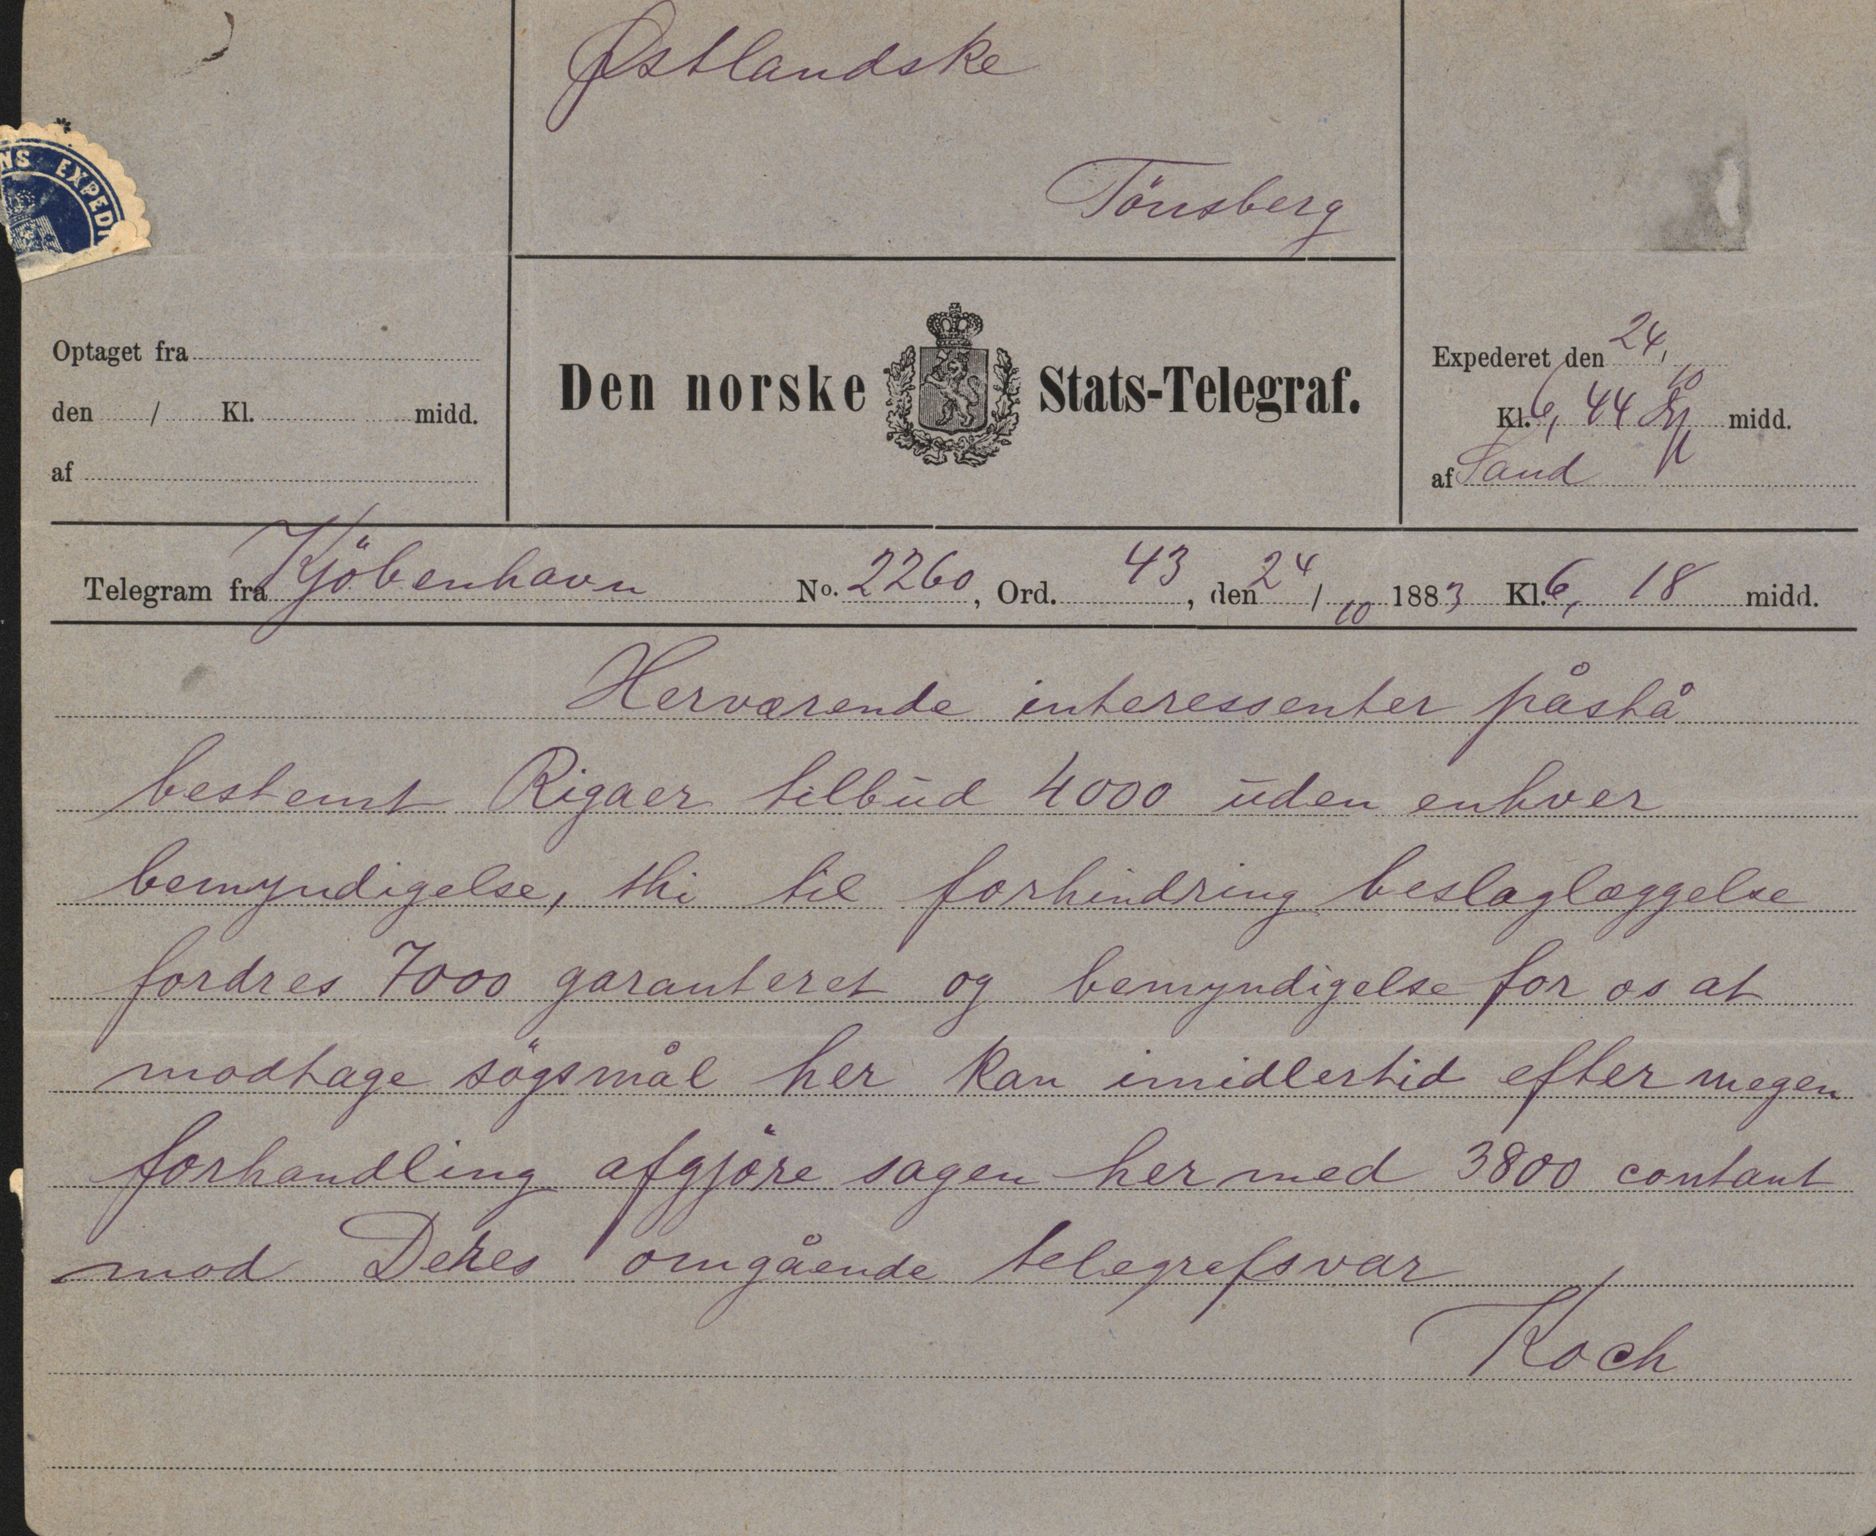 Østlandske
Tönsberg
NS EXPEDI
Optaget fra
den / Kl. midd.
af
Den norske Stats-Telegraf.
Expederet den 24/10
Kl. 6,44 midd.
af Sand
Telegram fra Kjöbenhavn No. 2260, Ord. 43, den 24/10 1883 Kl. 6,18 midd.
Herværende interessenter påstå
bestemt Rigaer tilbud 4000 uden enhver
bemyndigelse, thi til forhindring beslaglæggelse
fordres 7000 garanteret og bemyndigelse for os at
modtage sögsmål her kan imidlertid efter megen
forhandling afgjöre sagen her med 3800 contant
mod Deres omgående telegrafsvar
Koch